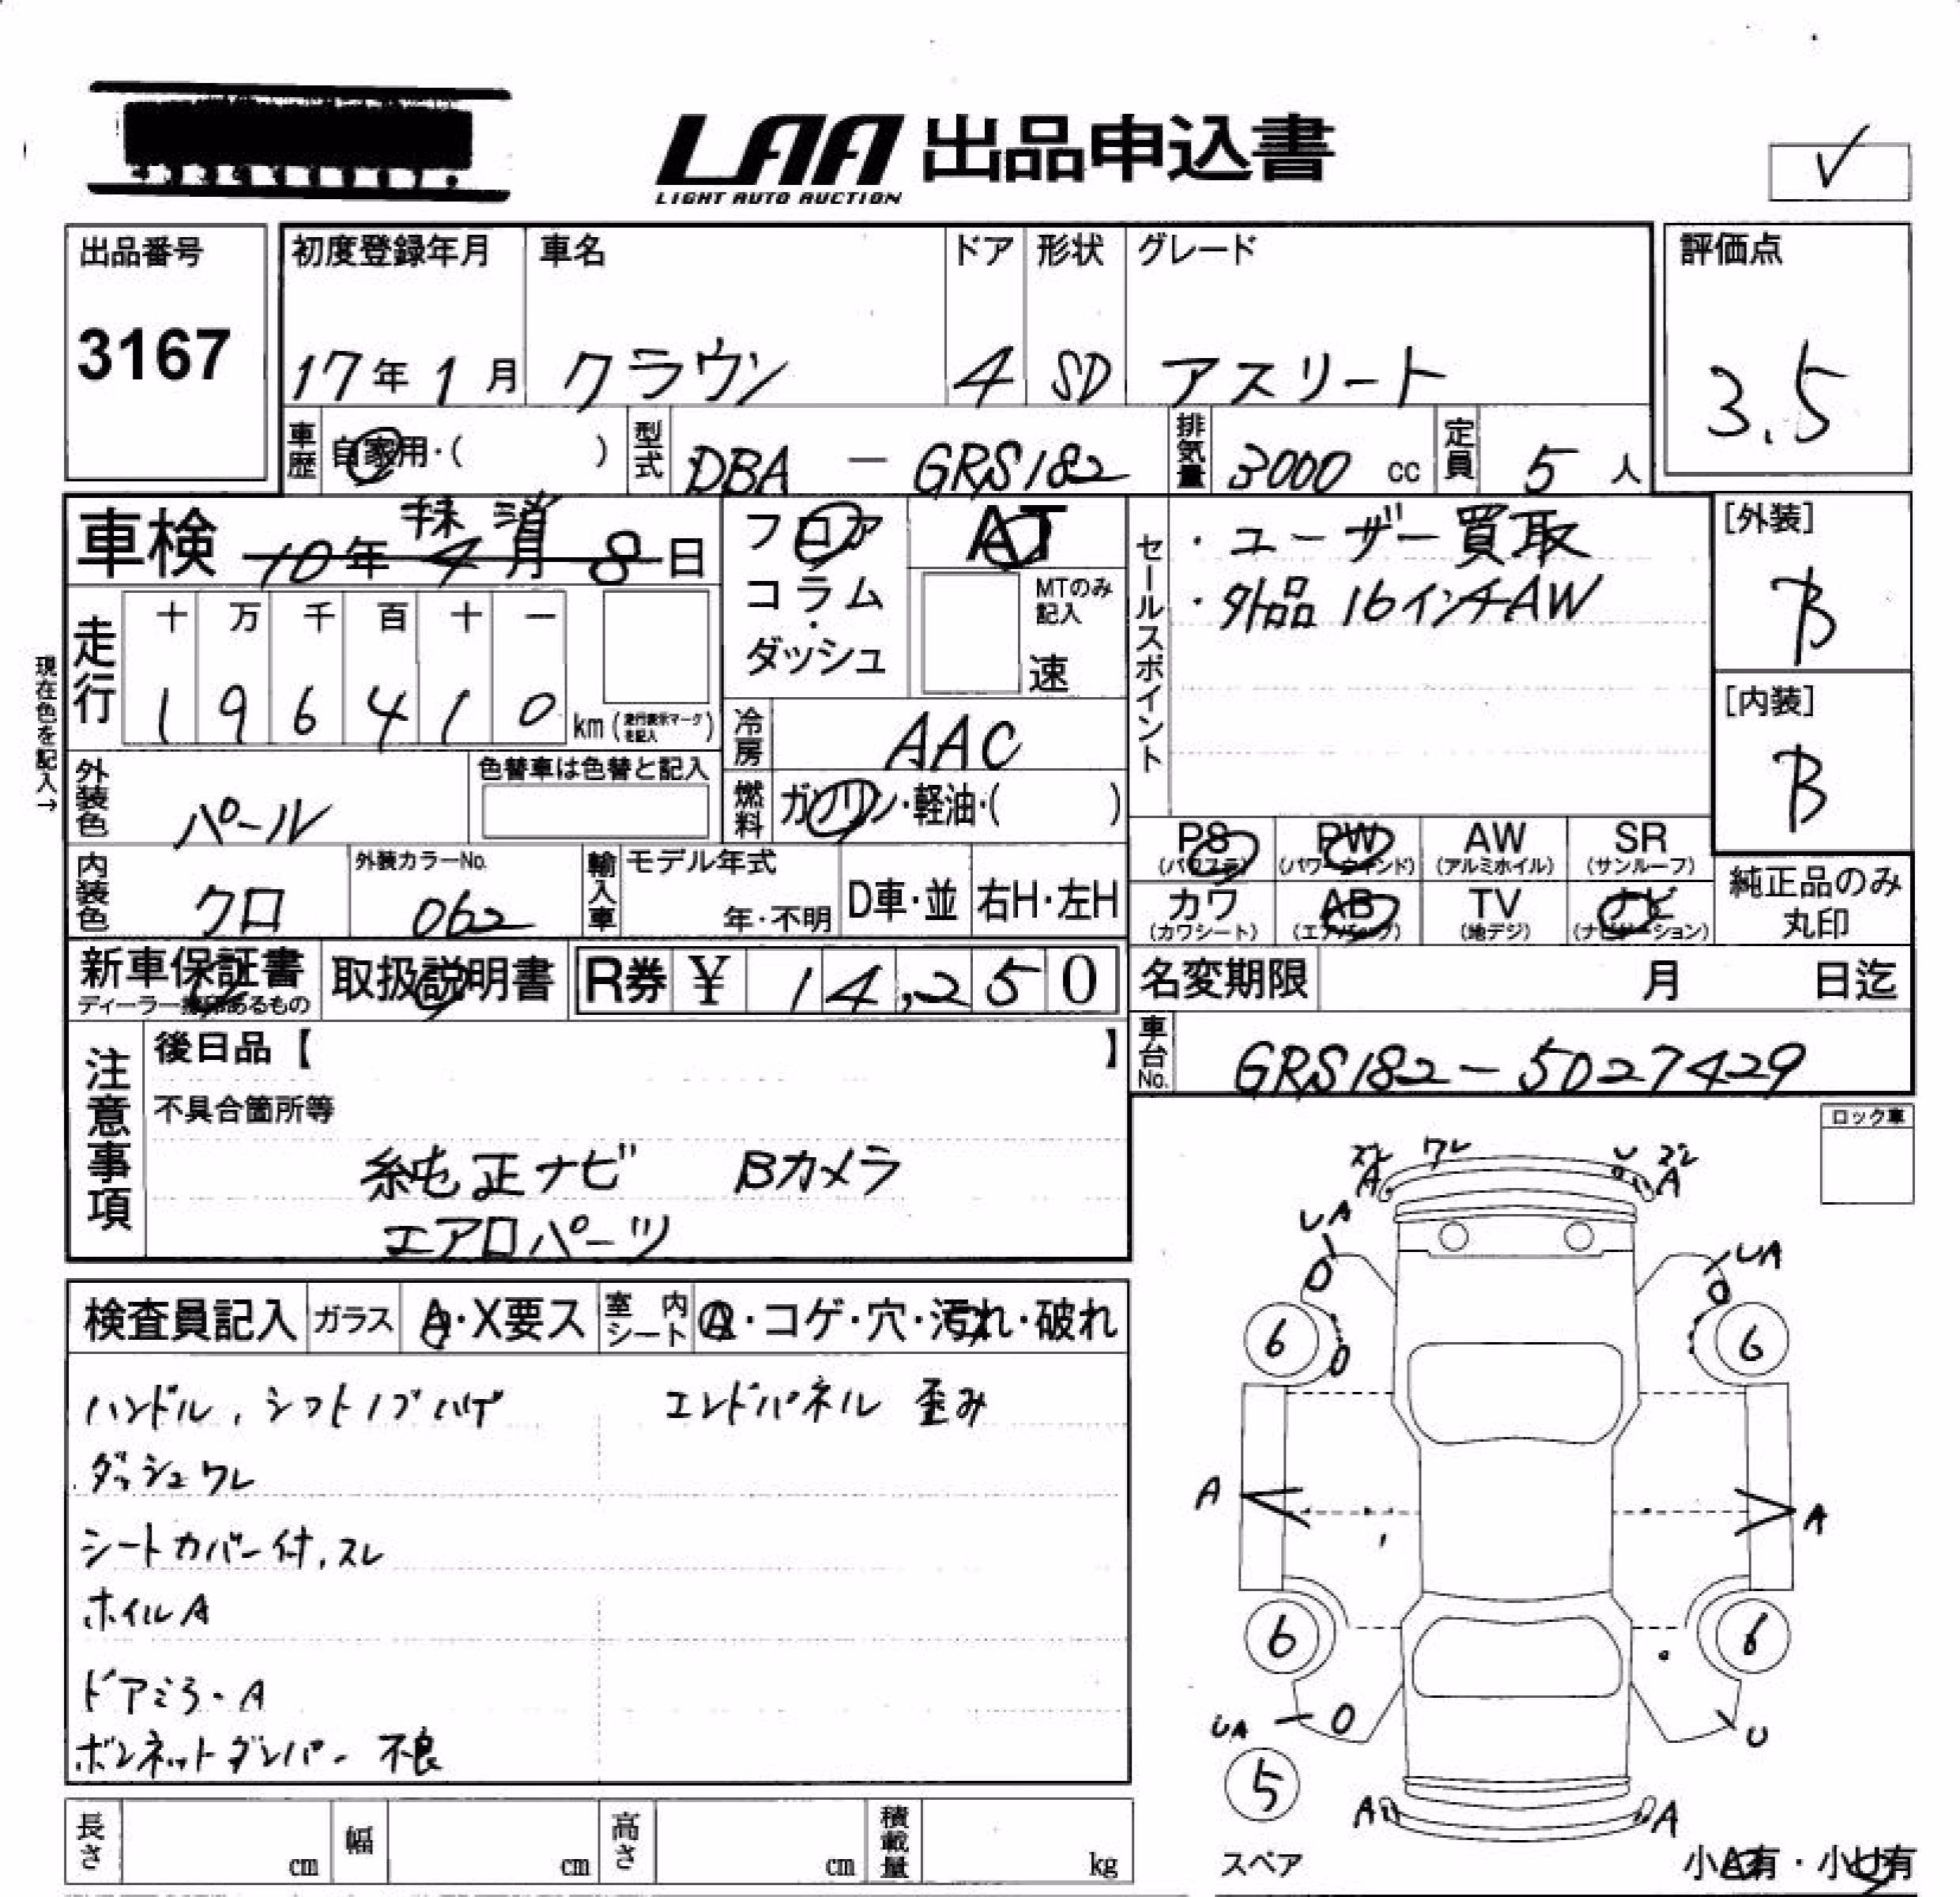 LAA 出品申込書
LIGHT AUTO AUCTION
出品番号
3167
初度登録年月
17年1月
車名
クラウン
ドア
4
形状
SD
グレード
アスリート
評価点
3.5
車歴
自家用・( )
型式
DBA - GRS182
排気量
3000 cc
定員
5 人
車検
抹消
10年4月8日
走行
十 万 千 百 十 一
1 9 6 4 1 0
km (走行表示マークを記入)
現在色を記入→
外装色
パール
色替車は色替と記入
内装色
クロ
外装カラーNo.
062
フロア
コラム
・
ダッシュ
AT
MTのみ
記入
速
冷房
AAC
燃料
ガソリン・軽油・( )
輸入車
モデル年式
年・不明
D車・並
右H・左H
セールスポイント
・ユーザー買取
・外品16インチAW
[外装]
B
[内装]
B
PS
(パワステ)
PW
(パワーウィンド)
AW
(アルミホイル)
SR
(サンルーフ)
カワ
(カワシート)
AB
(エアバック)
TV
(地デジ)
ナビ
(ナビゲーション)
純正品のみ
丸印
新車保証書
取扱説明書
R券 ¥ 14,250
名変期限
月 日迄
車台No.
GRS182-5027429
注意事項
後日品【 】
不具合箇所等
純正ナビ Bカメラ
エアロパーツ
検査員記入
ガラス
A・X要ス
室内シート
・コゲ・穴・汚れ・破れ
ハンドル,シフトノブハゲ
エンドパネル 歪み
ダッシュワレ
シートカバー付,スレ
ホイルA
ドアミラーA
ボンネットダンパー 不良
長さ
cm
幅
cm
高さ
cm
積載量
kg
ロック車
スレ
A
ワレ
U
スレ
A
UA
UA
6
6
A
A
6
6
UA
U
5
スペア
A
A
小A有・小U有